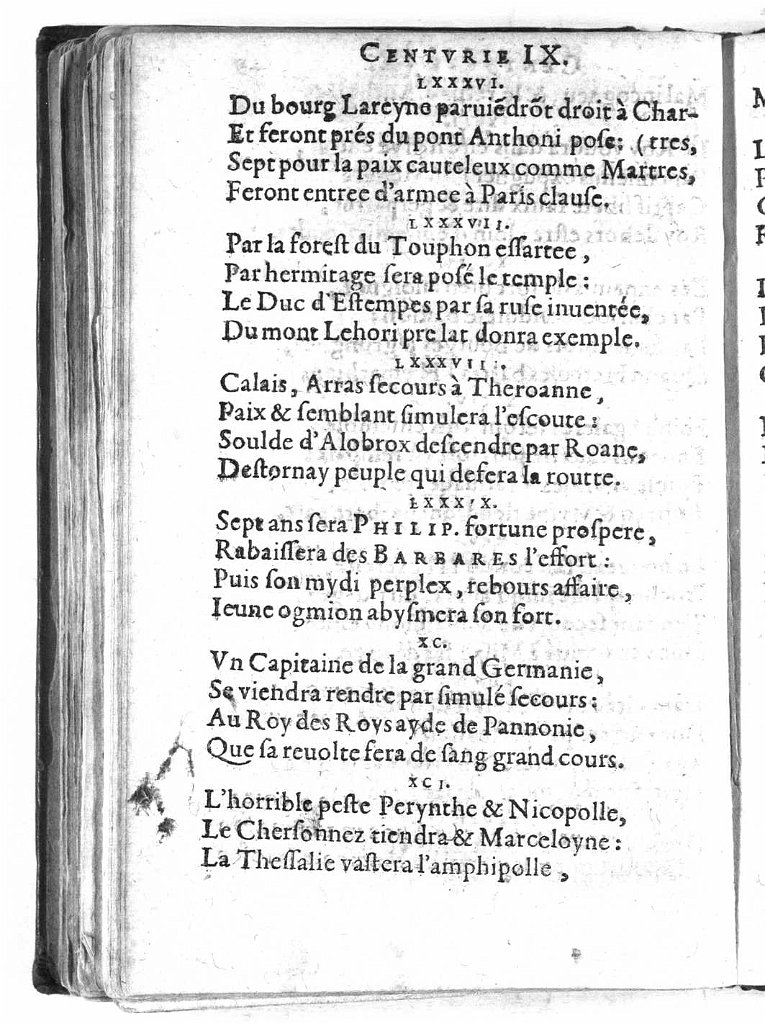 CENTVRIE IX.
LXXXVI.
Du bourg Lareyne paruiēdrõt droit à Char-
Et feront prés du pont Anthoni pose: (tres,
Sept pour la paix cauteleux comme Martres,
Feront entree d'armee à Paris clause.
LXXXVII.
Par la forest du Touphon essartee,
Par hermitage sera posé le temple:
Le Duc d'Estempes par sa ruse inuentée,
Du mont Lehori prelat donra exemple.
LXXXVIII.
Calais, Arras secours à Theroanne,
Paix & semblant simulera l'escoute:
Soulde d'Alobrox descendre par Roane,
Destornay peuple qui defera la routte.
LXXXIX.
Sept ans sera PHILIP. fortune prospere,
Rabaissera des BARBARES l'effort:
Puis son mydi perplex, rebours affaire,
Ieune ogmion abysmera son fort.
XC.
Vn Capitaine de la grand Germanie,
Se viendra rendre par simulé secours:
Au Roy des Roys ayde de Pannonie,
Que sa reuolte fera de sang grand cours.
XCI.
L'horrible peste Perynthe & Nicopolle,
Le Chersonnez tiendra & Marceloyne:
La Thessalie vastera l'amphipolle,